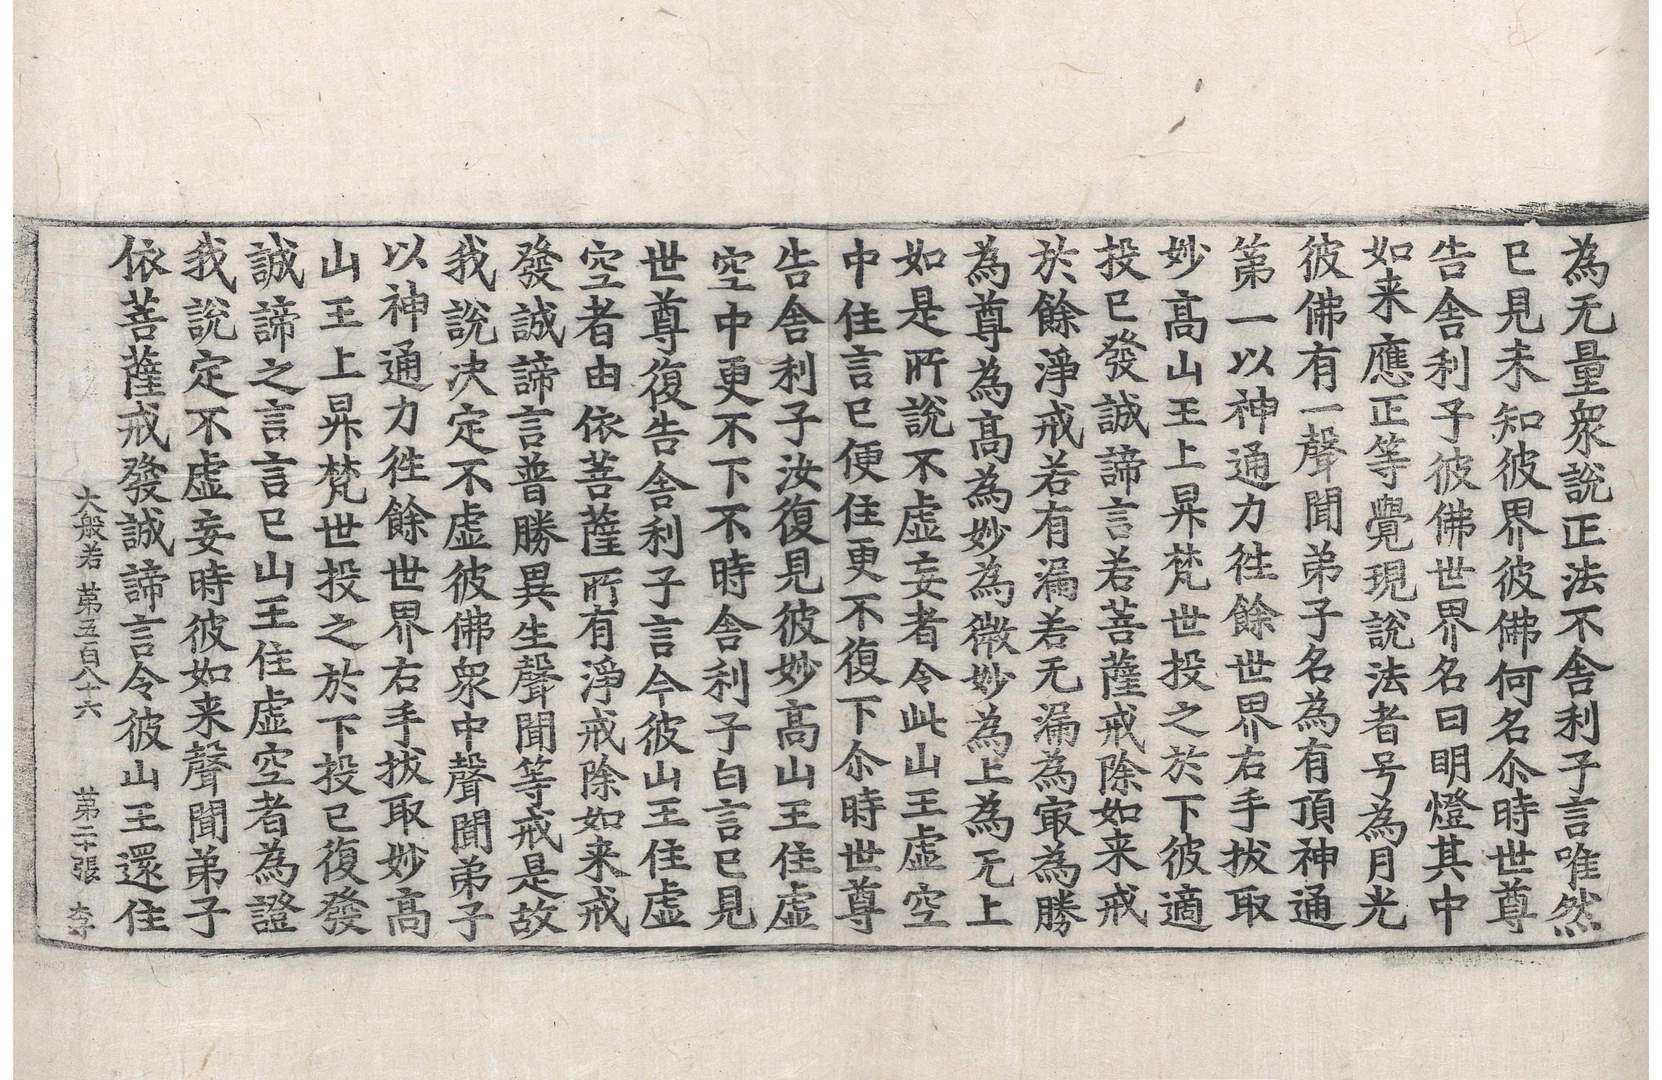 為无量衆說正法不舍利子言唯然
已見未知彼界彼佛何名尒時世尊
告舍利子彼佛世界名曰明燈其中
如来應正等覺現說法者号為月光
彼佛有一聲聞弟子名為有頂神通
第一以神通力徃餘世界右手拔取
妙髙山王上昇梵世投之於下彼適
投已發誠諦言若菩薩戒除如来戒
於餘淨戒若有漏若无漏為㝡為勝
為尊為髙為妙為微妙為上為无上
如是所說不虛妄者令此山王虛空
中住言已便住更不復下尒時世尊
告舍利子汝復見彼妙髙山王住虛
空中更不下不時舍利子白言已見
世尊復告舍利子言今彼山王住虛
空者由依菩薩所有淨戒除如来戒
發誠諦言普勝異生聲聞等戒是故
我說决定不虛彼佛衆中聲聞弟子
以神通力徃餘世界右手拔取妙髙
山王上昇梵世投之於下投已復發
誠諦之言言已山王住虛空者為證
我說定不虛妄時彼如来聲聞弟子
依菩薩戒發誠諦言令彼山王還住
大般若 第五百八十六 第二十張 李